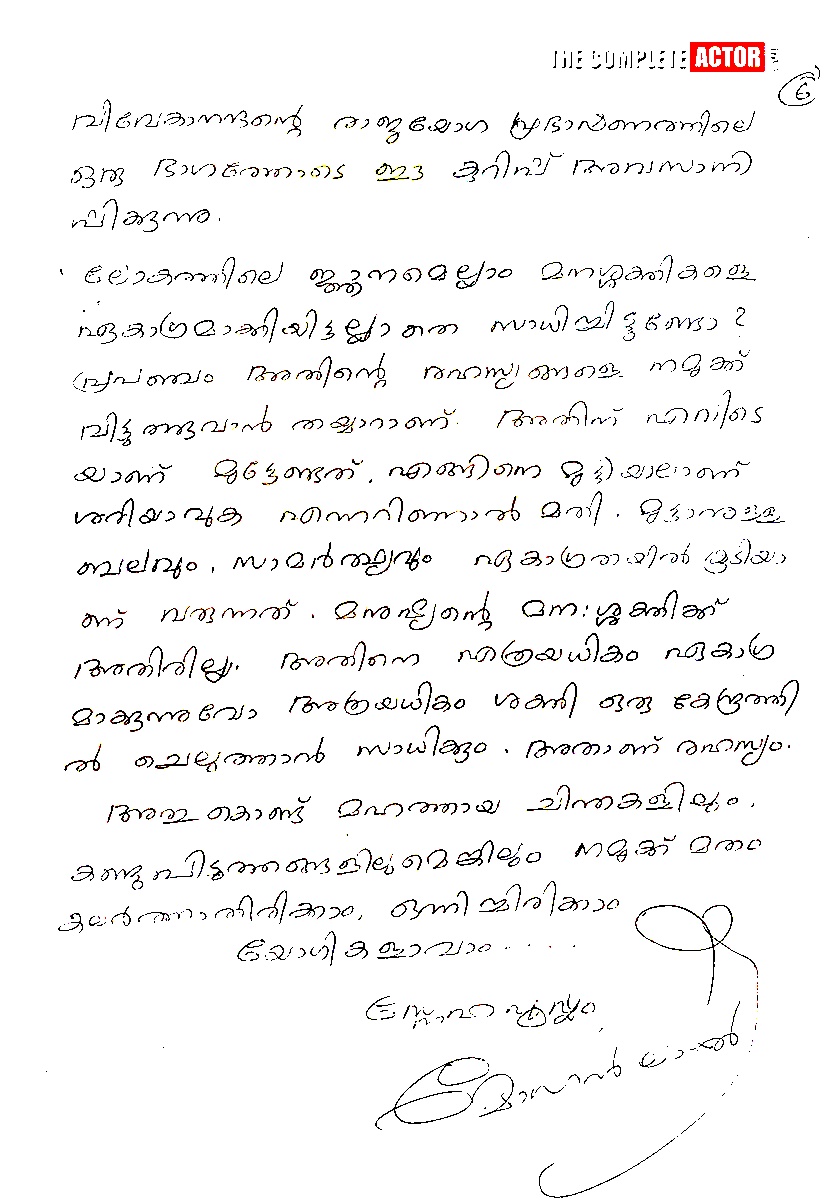 THE COMPLETE ACTOR
6
വിവേകാനന്ദന്റെ രാജയോഗ പ്രഭാഷണത്തിലെ
ഒരു ഭാഗത്തോടെ ഈ കുറിപ്പ് അവസാനി
പ്പിക്കുന്നു.
' ലോകത്തിലെ ജ്ഞാനമെല്ലാം മനശ്ശക്തികളെ
ഏകാഗ്രമാക്കിയിട്ടല്ലാതെ സാധിച്ചിട്ടുണ്ടോ ?
പ്രപഞ്ചം അതിന്റെ രഹസ്യങ്ങളെ നമുക്ക്
വിട്ടുതരുവാൻ തയ്യാറാണ്. അതിന് എവിടെ
യാണ് മുട്ടേണ്ടത്, എങ്ങിനെ മുട്ടിയാലാണ്
ശരിയാവുക എന്നറിഞ്ഞാൽ മതി. മുട്ടാനുള്ള
ബലവും, സാമർത്ഥ്യവും ഏകാഗ്രതയിൽ കൂടിയാ
ണ് വരുന്നത്. മനുഷ്യന്റെ മനഃശ്ശക്തിക്ക്
അതിരില്ല. അതിനെ എത്രയധികം ഏകാഗ്ര
മാക്കുന്നുവോ അത്രയധികം ശക്തി ഒരു കേന്ദ്രത്തി
ൽ ചെലുത്താൻ സാധിക്കും. അതാണ് രഹസ്യം.
അതുകൊണ്ട് മഹത്തായ ചിന്തകളിലും,
കണ്ടുപിടുത്തങ്ങളിലുമെങ്കിലും നമുക്ക് മതം
കലർത്താതിരിക്കാം, ഒന്നിച്ചിരിക്കാം
യോഗികളാവാം.....
സ്നേഹപൂർവ്വം
മോഹൻലാൽ